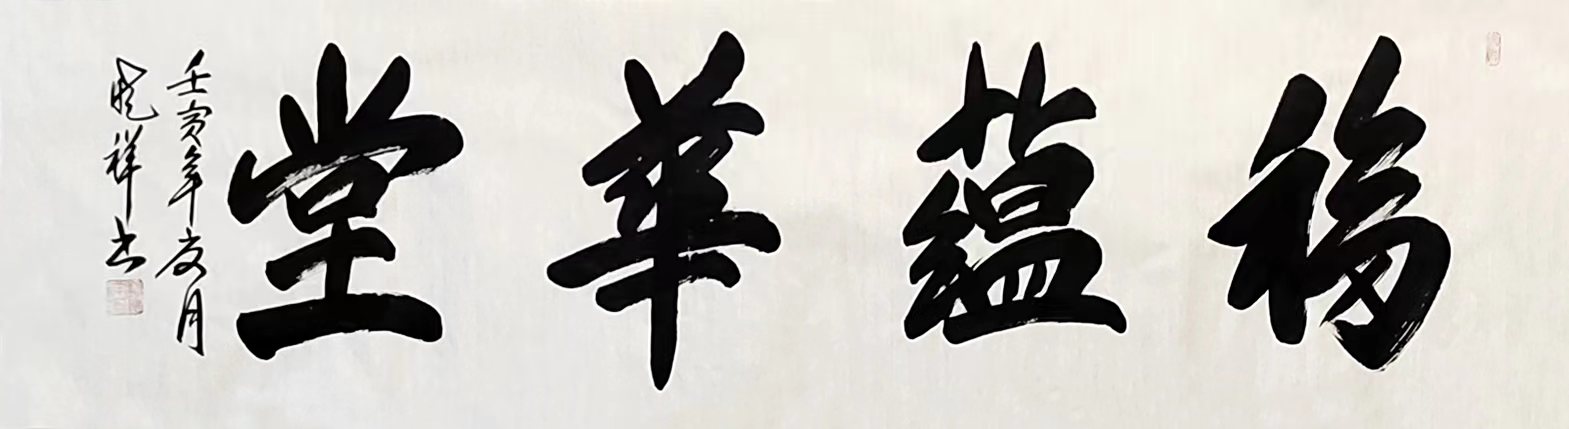 福蕴華堂
壬寅年夏月
晓祥书